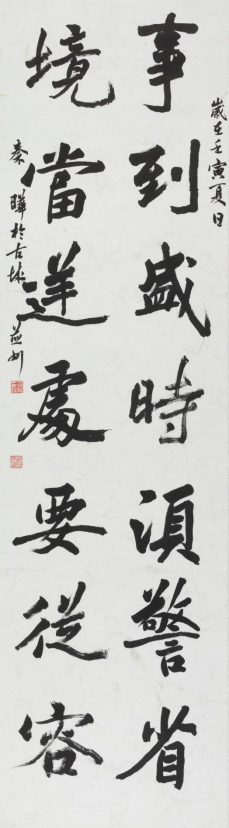 歲在壬寅夏日
事到盛時須警省
境當逆處要從容
秦曄於古城州